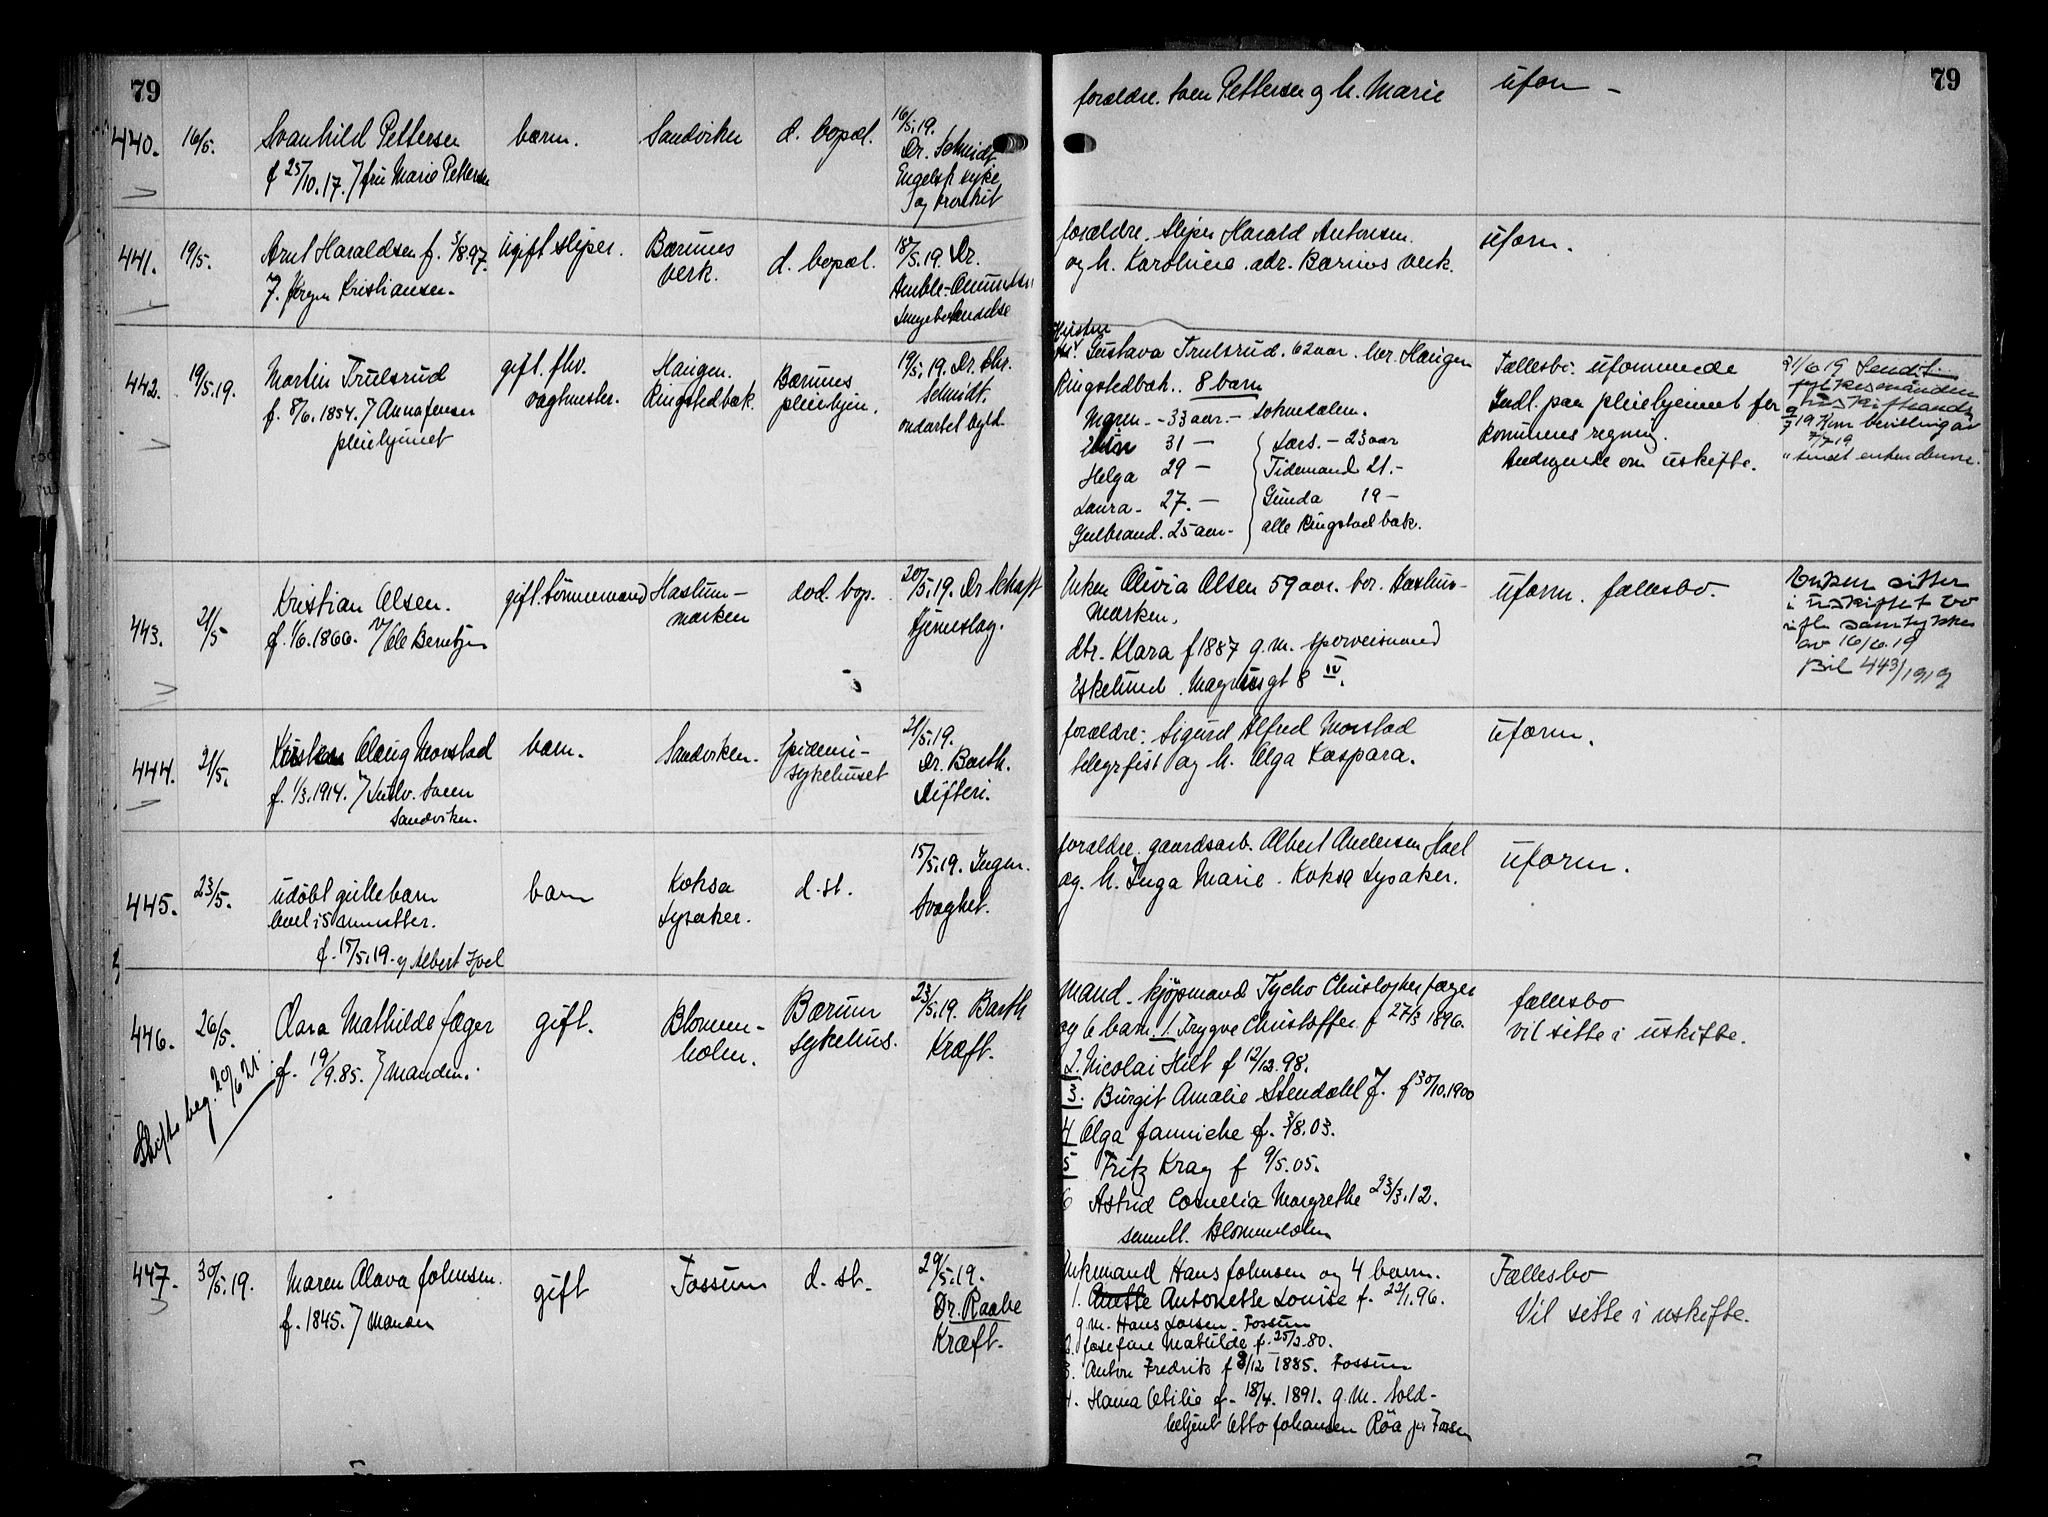 79
79
440. 16/5. Svanhild Pettersen barn. Sandviken d. bopæl. 16/5.19.
f 25/10.17. fru Marie Pettersen
Dr. Schmidt
Engelsk syke
og bronkit
forældre. Sven Pettersen og h. Marie uform
441. 19/5. Arnt Haraldsen f. 5/8.97. Ugift sliper. Bærums verk. d. bopæl. 18/5.19. Dr.
Jørgen Kristiansen.
Amble-Ommundsen
Lungebetændelse
forældre. Sliper Harald Antonsen. uform.
og h. Karoline. adr. Bærums verk.
442. 19/5.19. Martin Trulsrud gift. fhv. vagtmester. Haugen. Ringstedbæk. Bærums pleiehjem. 19/5.19. Dr. Chr.
f. 8/6.1854. Anna Jensen
pleiehjemmet
Schmidt.
ondartet byld.
Hustru
Gustava Trulsrud. 62 aar. bor. Haugen
Ringstedbæk. 8 barn
Maren - 33 aar. - Soknedalen.
31 - Lars. - 23 aar
Helga 29 - Tidemand 21. -
Laura - 27. - Gunda 19 -
Gulbrand. 25 aar - alle Ringstad bæk.
Fællesbo. uformuende
Indl. paa pleiehjemmet for
kommunens regning.
Andragende om uskifte.
21/6 19 Sendt
fylkesmanden
uskifteandr.
9/7 19 Kom bevilling av
7/7 19
" sendt enken denne.
443. 21/5 Kristian Olsen. gift. tømmermand Haslum-marken død. bop. 20/5.19. Dr Schaft
f. 1/6.1866. Ole Berntzen
Hjerneslag.
Enken Olivia Olsen 59 aar. bor. Haslum-
marken.
dtr. Klara f 1887 g.m. sporveismand
Eskelund. Magnusgt 8 IV.
uform. fællesbo.
Enken sitter
i uskiftet bo
ifl. samtykke
av 16/6.19
Bil 443/1919
444. 21/5. Olaug Morstad barn. Sandviken. Epidemi-sykehuset 21/5.19.
f. 1/3.1914. Sandviken.
Dr. Barth.
Difteri.
forældre. Sigurd Alfred Morstad uform.
telegrfist og h. Olga Kaspara.
445. 23/5. udøbt guttebarn barn Koksa Lysaker. d. st. 15/5.19. Ingen.
levet i 5 minutter.
f. 15/5.19. Albert Hoel
Svaghet.
forældre. gaardsarb. Albert Andersen Hoel uform.
og. h. Inga Marie. Koksa Lysaker.
446. 26/5. Clara Mathilde Jæger gift. Blommen-holm. Bærum sykehus. 23/5.19. Barth
f. 19/9.85. Manden.
Kræft.
Skifte beg. 20/6 21.
Mand. kjøpmand Tycho Christopher Jæger
og 6 barn. 1. Trygve Christoffer f 27/3 1896.
2. Nicolai Hilt f 12/12.98.
3. Burgit Amalie Stendahl J. f 30/10.1900
4 Olga Jannicke f. 3/8.03.
5 Fritz Krag f 9/5.05.
6 Astrid Cornelia Margrethe 23/3.12.
samtl. Blommenholm
fællesbo
vil sitte i uskifte.
447. 30/5.19. Maren Olava Johnsen. gift Fossum d. st. 29/5.19.
f. 1845. Manden
Dr. Raabe
Kræft.
Enkemand Hans Johnsen og 4 barn.
1. Antonette Louise f. 22/1.96.
g.m. Hans Larsen. Fossum
2. Josefine Mathilde f. 25/2.80.
3. Anton Fredrik f 8/12 1885. Fossum
4. Hanna Otilie f. 18/4. 1891. g.m. told-
betjent Otto Johansen Röa pr Fossum
Fællesbo
Vil sitte i uskifte.